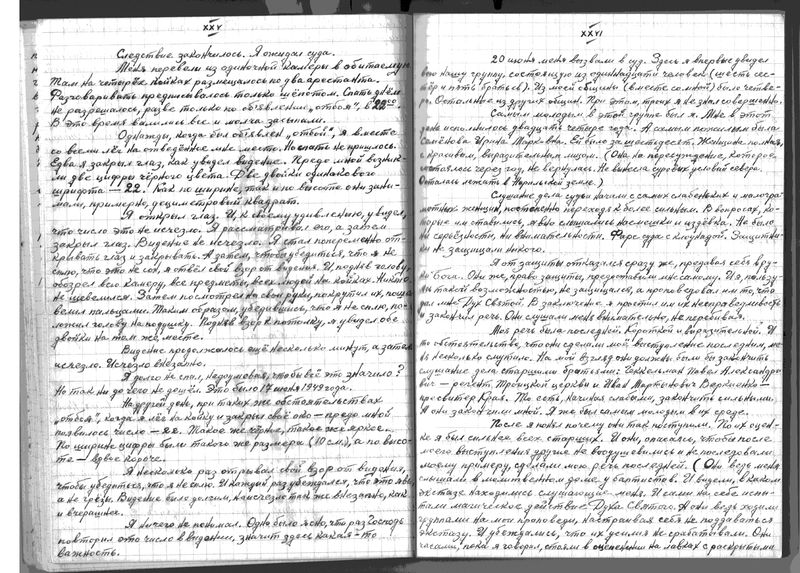 XXV
Следствие закончилось. Я ожидал суда.
Меня перевели из одиночной камеры в обитаемую.
Там на четырёх койках размещалось по два арестанта.
Разговаривать предписывалось только шёпотом. Спать днём
не разрешалось, разве только по объявлении „отбоя", в 22 00.
В это время валились все и молча засыпали.
Однажды, когда был объявлен „отбой", я вместе
со всеми лёг на отведённое мне место. Но спать не пришлось.
Едва я закрыл глаз, как увидел видение. Предо мной возник-
ли две цифры чёрного цвета. Две двойки одинакового
шрифта — 22. Как по ширине, так и по высоте они зани-
мали, примерно, дециметровый квадрат.
Я открыл глаз. И, к своему удивлению, увидел,
что число это не исчезло. Я рассматривал его, а затем
закрыл глаз. Видение не исчезло. Я стал попеременно от-
крывать глаз и закрывать. А затем, чтобы убедиться, что я не
сплю, что это не сон, я отвёл свой взор от видения. И, подняв голову,
обозрел всю камеру, все предметы, всех людей на койках. Никто
не шевелился. Затем посмотрел на свои руки, покрутил их, поше-
велил пальцами. Таким образом, убедившись, что я не сплю, по-
ложил голову на подушку. Подняв взор к потолку, я увидел обе
двойки на том же месте.
Видение продолжалось ещё несколько минут, а затем
исчезло. Исчезло внезапно.
Я долго не спал, недоумевая, что бы всё это значило?
Но так ни до чего не дошёл. Это было 17 июня 1949 года.
На другой день, при таких же обстоятельствах
„отбоя", когда я лёг на койку и закрыл своё око — предо мной
появилось число — 22. Такое же чёрное, такое же яркое.
По ширине цифры были такого же размера (10 см.), а по высо-
те — вдвое короче.
Я несколько раз отрывал свой взор от видения,
чтобы убедиться, что я не сплю. И каждый раз убеждался, что это явь,
а не грёзы. Видение было долгим, и исчезло так же внезапно, как
и вчерашнее.
Я ничего не понимал. Одно было ясно, что раз Господь
повторил это число в видении, значит здесь какая-то
важность.
XXVI
20 июня меня вызвали в суд. Здесь я впервые увидел
всю нашу группу, состоящую из одиннадцати человек (шесть сес-
тёр и пять братьев). Из моей общины (вместе со мной) было четве-
ро. Остальные из других общин. При этом, троих я не знал совершенно.
Самым молодым в этой группе был я. Мне в этот
день исполнилось двадцать четыре года. А самым пожилым была
Семёнова Ирина Марковна. Ей было за шестьдесят. Женщине полная,
с красивым, выразительным лицом. (Она на пересуждение, которое
состоялось через год, не вернулась. Не вынесла суровых условий севера.
Осталась лежать в Норильской земле.)
Слушание дела судьи начали с самых слабеньких и малогра-
мотных женщин, постепенно переходя к более сильным. В вопросах, ко-
торые им ставились, явно слышались насмешки и издёвка. Не было
ни серьёзности, ни внимательности. Фарс суда с клоунадой. Защитни-
ки не защищали никого.
Я от защиты отказался сразу же, предавая себя в ру-
ки Бога. Они же, право защиты, предоставили мне самому. И я, пользу-
ясь такой возможностью, не защищался, а проповедовал им то, что
дал мне Дух Святой. В заключение я простил им их несправедливость
и закончил речь. Они слушали меня внимательно, не перебивая.
Моя речь была последней. Короткой и выразительной. И
то обстоятельство, что они сделали моё выступление последним, ме-
ня несколько смутило. На мой взгляд они должны были бы закончить
слушание дела старшими братьями: Александрови-
вич — регент Троицкой церкви и Иван Мартынович —
пресвитер Края. То есть, начиная слабыми, закончить сильными.
А они закончили мной. Я же был самым молодым в их среде.
После я понял почему они так поступили. По их оцен-
ке я был сильнее всех старших. И они, опасаясь, чтобы после
моего выступления другие не воодушевились и не последовали
моему примеру, сделали мою речь последней. (Они ведь меня
слышали в молитвенном доме у баптистов. И видели, в каком
экстазе находились слушающие меня. И сами на себе испы-
тали магическое действие Духа Святого. А они ведь ходили
группами на мои проповеди, настраивая себя не поддаваться
экстазу. И убеждались, что их усилия не срабатывали. Они
часами, пока я говорил, стояли в оцепенении на лавках с раскрытыми